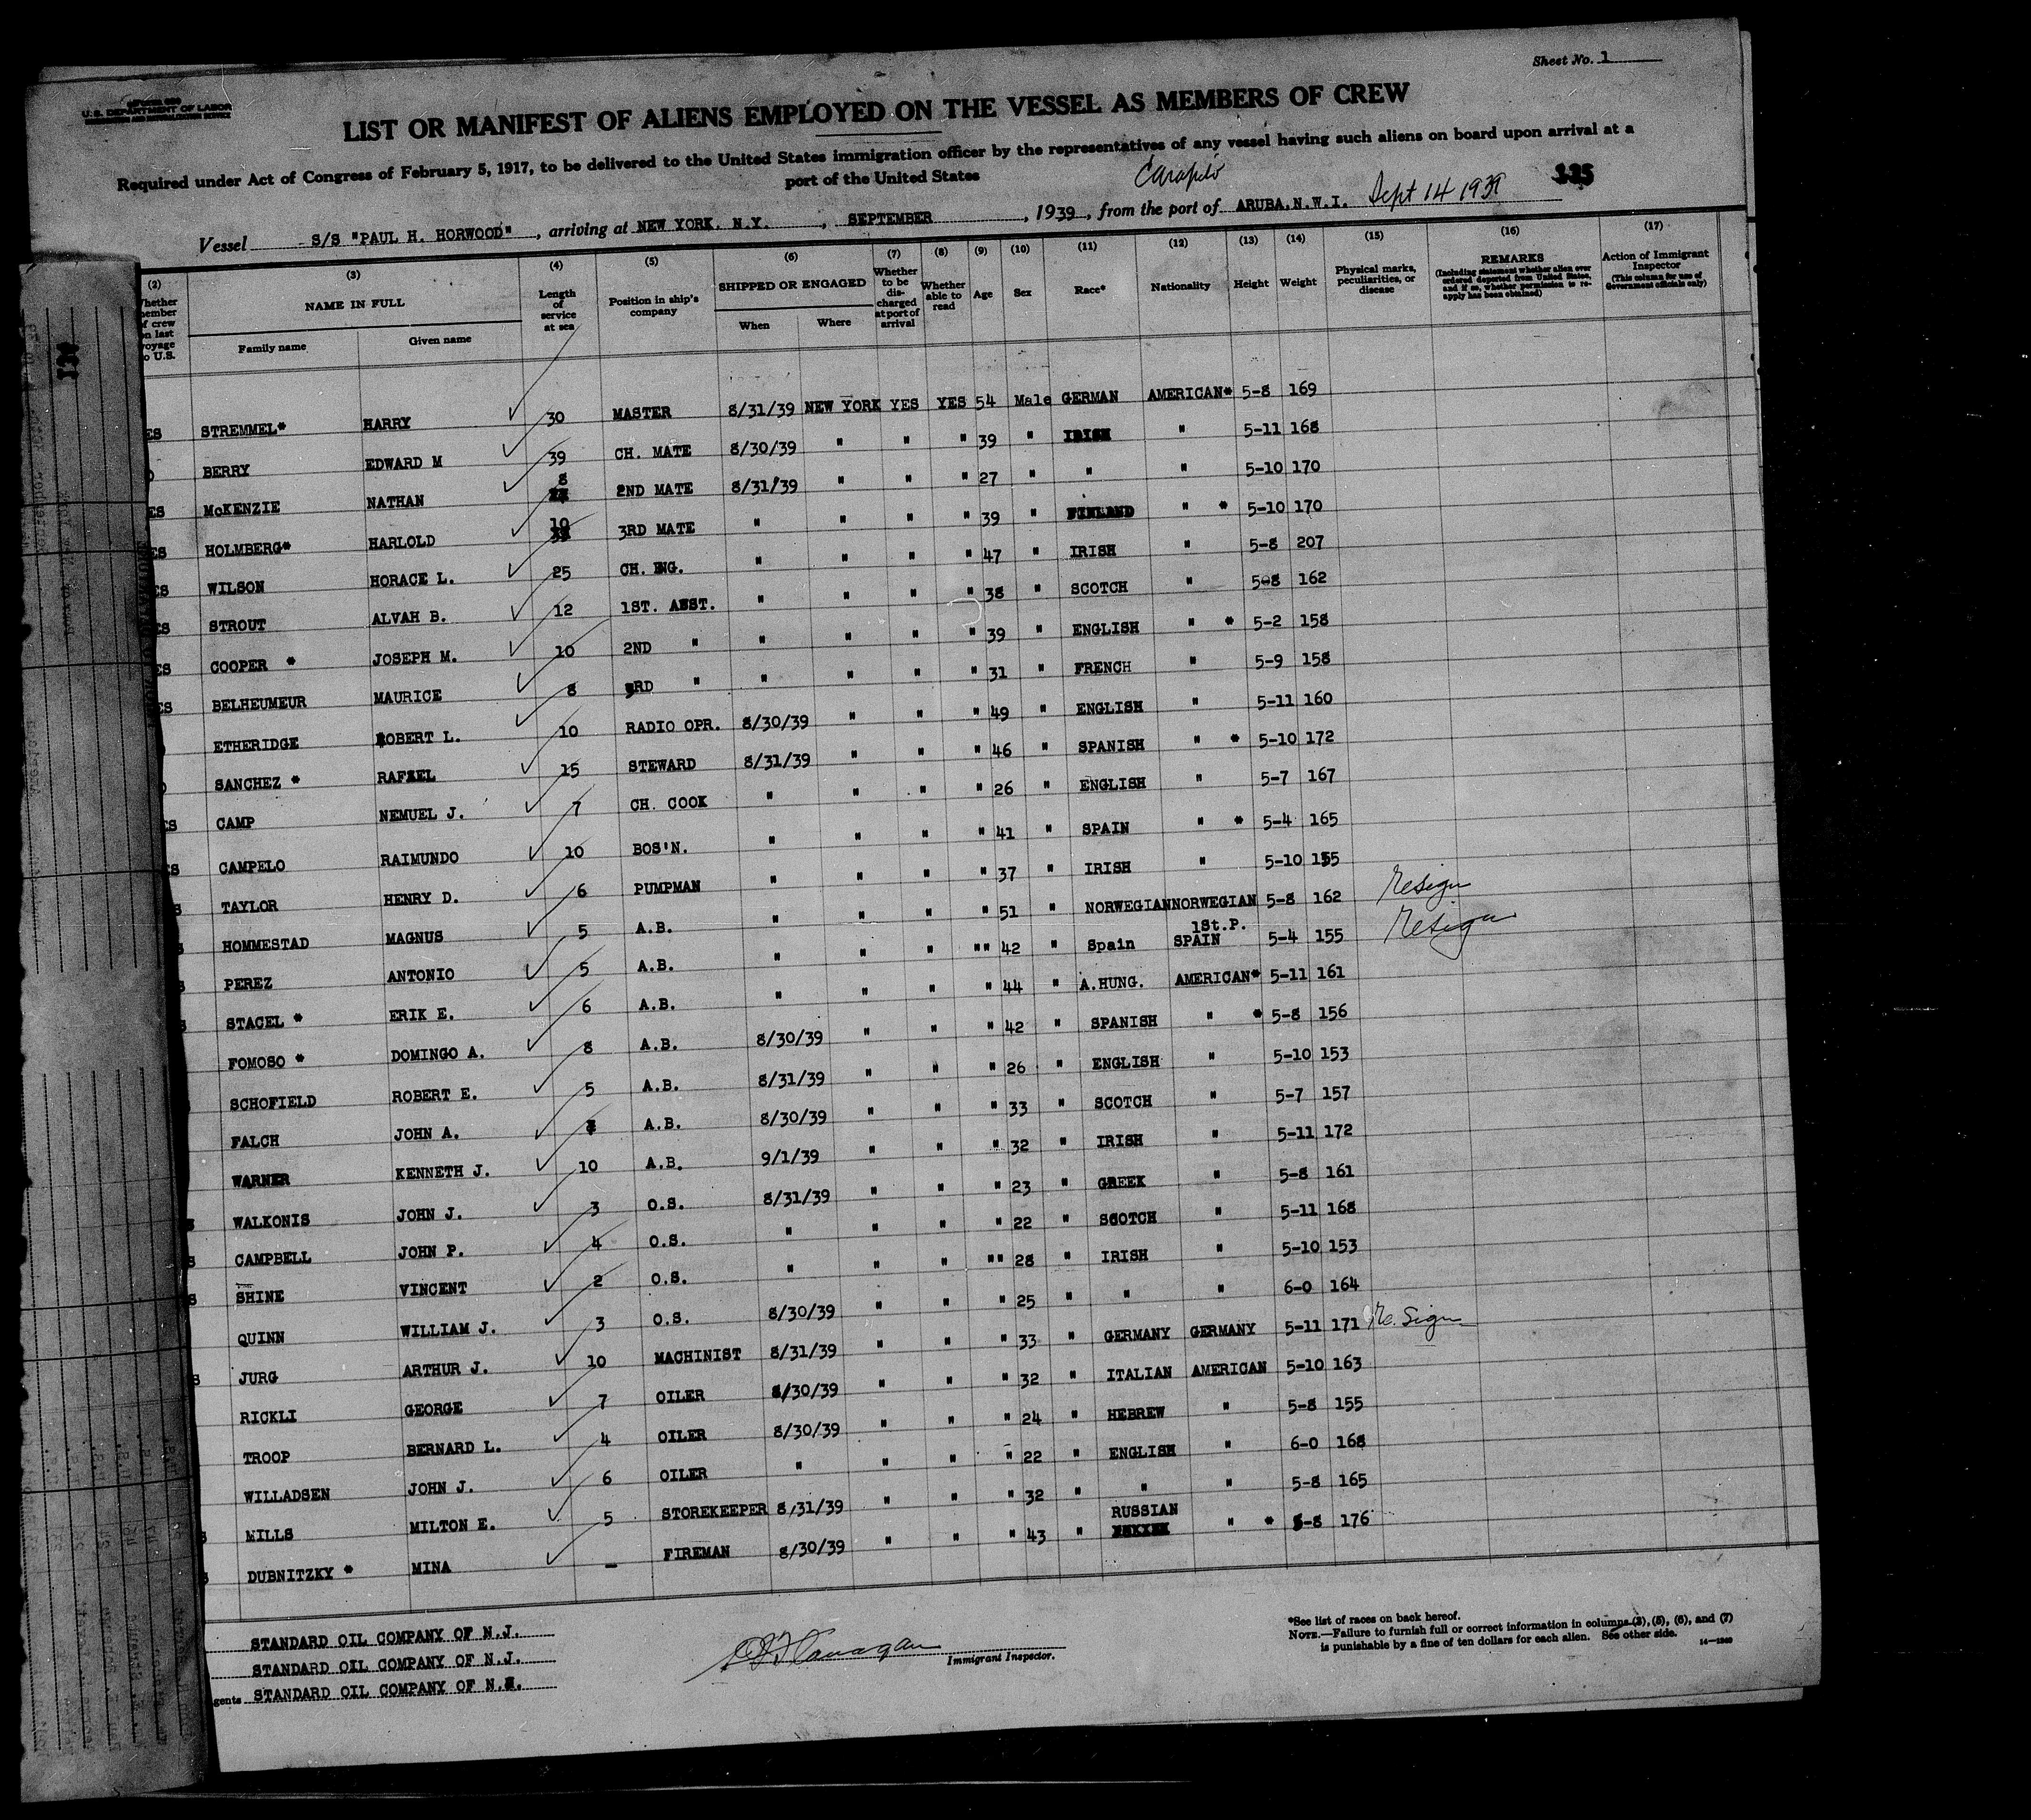 Sheet No. 1
U.S. DEPARTMENT OF LABOR
LIST OR MANIFEST OF ALIENS EMPLOYED ON THE VESSEL AS MEMBERS OF CREW
Required under Act of Congress of February 5, 1917, to be delivered to the United States immigration officer by the representatives of any vessel having such aliens on board upon arrival at a
port of the United States
125
Vessel S/S "PAUL H. HORWOOD", arriving at NEW YORK. N.Y., SEPTEMBER, 1939, from the port of ARUBA.N.W.I. Sept 14 1939
(2) (3) (4) (5) (6) (7) (8) (9) (10) (11) (12) (13) (14) (15) (16) (17)
NAME IN FULL Family name Given name Length of service at sea Position in ship's company SHIPPED OR ENGAGED When Where Whether to be discharged at port of arrival Whether able to read Age Sex Race* Nationality Height Weight Physical marks, peculiarities, or disease REMARKS (Including statement whether alien ever ordered deported from United States, and if so, whether permission to reapply has been obtained) Action of Immigrant Inspector (This column for use of Government officials only)
ES STREMMEL* HARRY 30 MASTER 8/31/39 NEW YORK YES YES 54 Male GERMAN AMERICAN* 5-8 169
BERRY EDWARD M 39 CH. MATE 8/30/39 " " " 39 " IRISH " 5-11 168
ES McKENZIE NATHAN 8 2ND MATE 8/31/39 " " " 27 " " " 5-10 170
ES HOLMBERG* HARLOLD 10 3RD MATE " " " " 39 " FINLAND " * 5-10 170
ES WILSON HORACE L. 25 CH. ENG. " " " " 47 " IRISH " 5-8 207
ES STROUT ALVAH B. 12 1ST. ASST. " " " " 38 " SCOTCH " 5-8 162
ES COOPER * JOSEPH M. 10 2ND " " " " " 39 " ENGLISH " * 5-2 158
ES BELHEUMEUR MAURICE 8 3RD " " " " " 31 " FRENCH " 5-9 158
ETHERIDGE ROBERT L. 10 RADIO OPR. 8/30/39 " " " 49 " ENGLISH " 5-11 160
SANCHEZ * RAFAEL 15 STEWARD 8/31/39 " " " 46 " SPANISH " * 5-10 172
ES CAMP NEMUEL J. 7 CH. COOK " " " " 26 " ENGLISH " 5-7 167
ES CAMPELO RAIMUNDO 10 BOS'N. " " " " 41 " SPAIN " * 5-4 165
S TAYLOR HENRY D. 6 PUMPMAN " " " " 37 " IRISH " 5-10 155
S HOMMESTAD MAGNUS 5 A.B. " " " " 51 " NORWEGIAN NORWEGIAN 5-8 162 Resign
S PEREZ ANTONIO 5 A.B. " " " "" 42 " Spain 1St.P. SPAIN 5-4 155 Resign
S STAGEL * ERIK E. 6 A.B. " " " " 44 " A.HUNG. AMERICAN* 5-11 161
FOMOSO * DOMINGO A. 8 A.B. 8/30/39 " " " 42 " SPANISH " * 5-8 156
SCHOFIELD ROBERT E. 5 A.B. 8/31/39 " " " 26 " ENGLISH " 5-10 153
FALCH JOHN A. A.B. 8/30/39 " " " 33 " SCOTCH " 5-7 157
WARNER KENNETH J. 10 A.B. 9/1/39 " " " 32 " IRISH " 5-11 172
S WALKONIS JOHN J. 3 O.S. 8/31/39 " " " 23 " GREEK " 5-8 161
S CAMPBELL JOHN P. 4 O.S. " " " " 22 " SCOTCH " 5-11 168
S SHINE VINCENT 2 O.S. " " " "" 28 " IRISH " 5-10 153
QUINN WILLIAM J. 3 O.S. 8/30/39 " " " 25 " " " 6-0 164
S JURG ARTHUR J. 10 MACHINIST 8/31/39 " " " 33 " GERMANY GERMANY 5-11 171 Re. Sign
RICKLI GEORGE 7 OILER 8/30/39 " " " 32 " ITALIAN AMERICAN 5-10 163
TROOP BERNARD L. 4 OILER 8/30/39 " " " 24 " HEBREW " 5-8 155
WILLADSEN JOHN J. 6 OILER " " " " 22 " ENGLISH " 6-0 168
S MILLS MILTON E. 5 STOREKEEPER 8/31/39 " " " 32 " " " 5-8 165
S DUBNITZKY * MINA — FIREMAN 8/30/39 " " " 43 " RUSSIAN " * 5-8 176
STANDARD OIL COMPANY OF N.J.
STANDARD OIL COMPANY OF N.J.
gents STANDARD OIL COMPANY OF N.J.
Immigrant Inspector.
*See list of races on back hereof.
NOTE.—Failure to furnish full or correct information in columns (3), (5), (6), and (7)
is punishable by a fine of ten dollars for each alien. See other side.